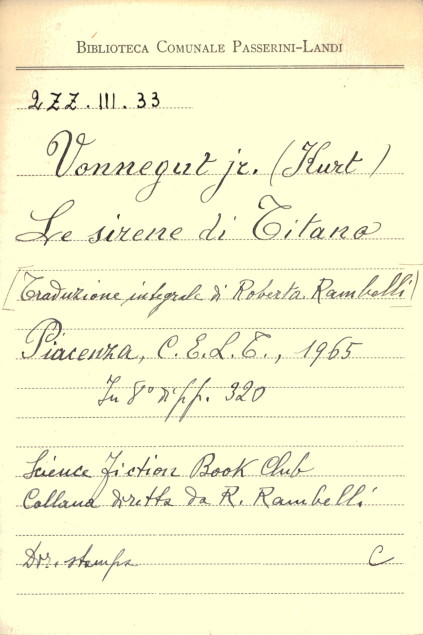 BIBLIOTECA COMUNALE PASSERINI-LANDI
2ZZ.III.33
Vonnegut jr. (Kurt)
Le sirene di Titano
[Traduzione integrale di Roberta Rambelli]
Piacenza, C.E.L.T., 1965
In 8° di pp. 320
Science Fiction Book Club
Collana diretta da R. Rambelli
Dir. stampa C